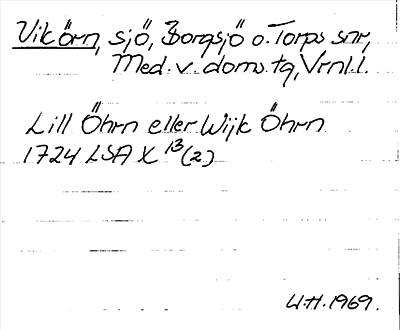 Vikörn, sjö, Borgsjö o. Torps snr,
Med. v. doms. tg, Vrnl.l.
Lill Öhrn eller Wijk Öhrn
1724 LSA X 13 (2)
U.H. 1969.